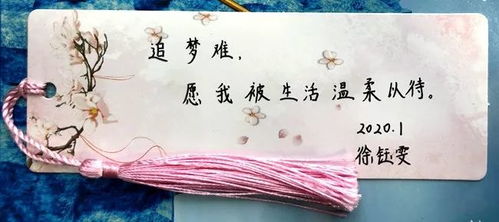 追梦难,
愿我被生活温柔以待。
2020.1
徐钰雯